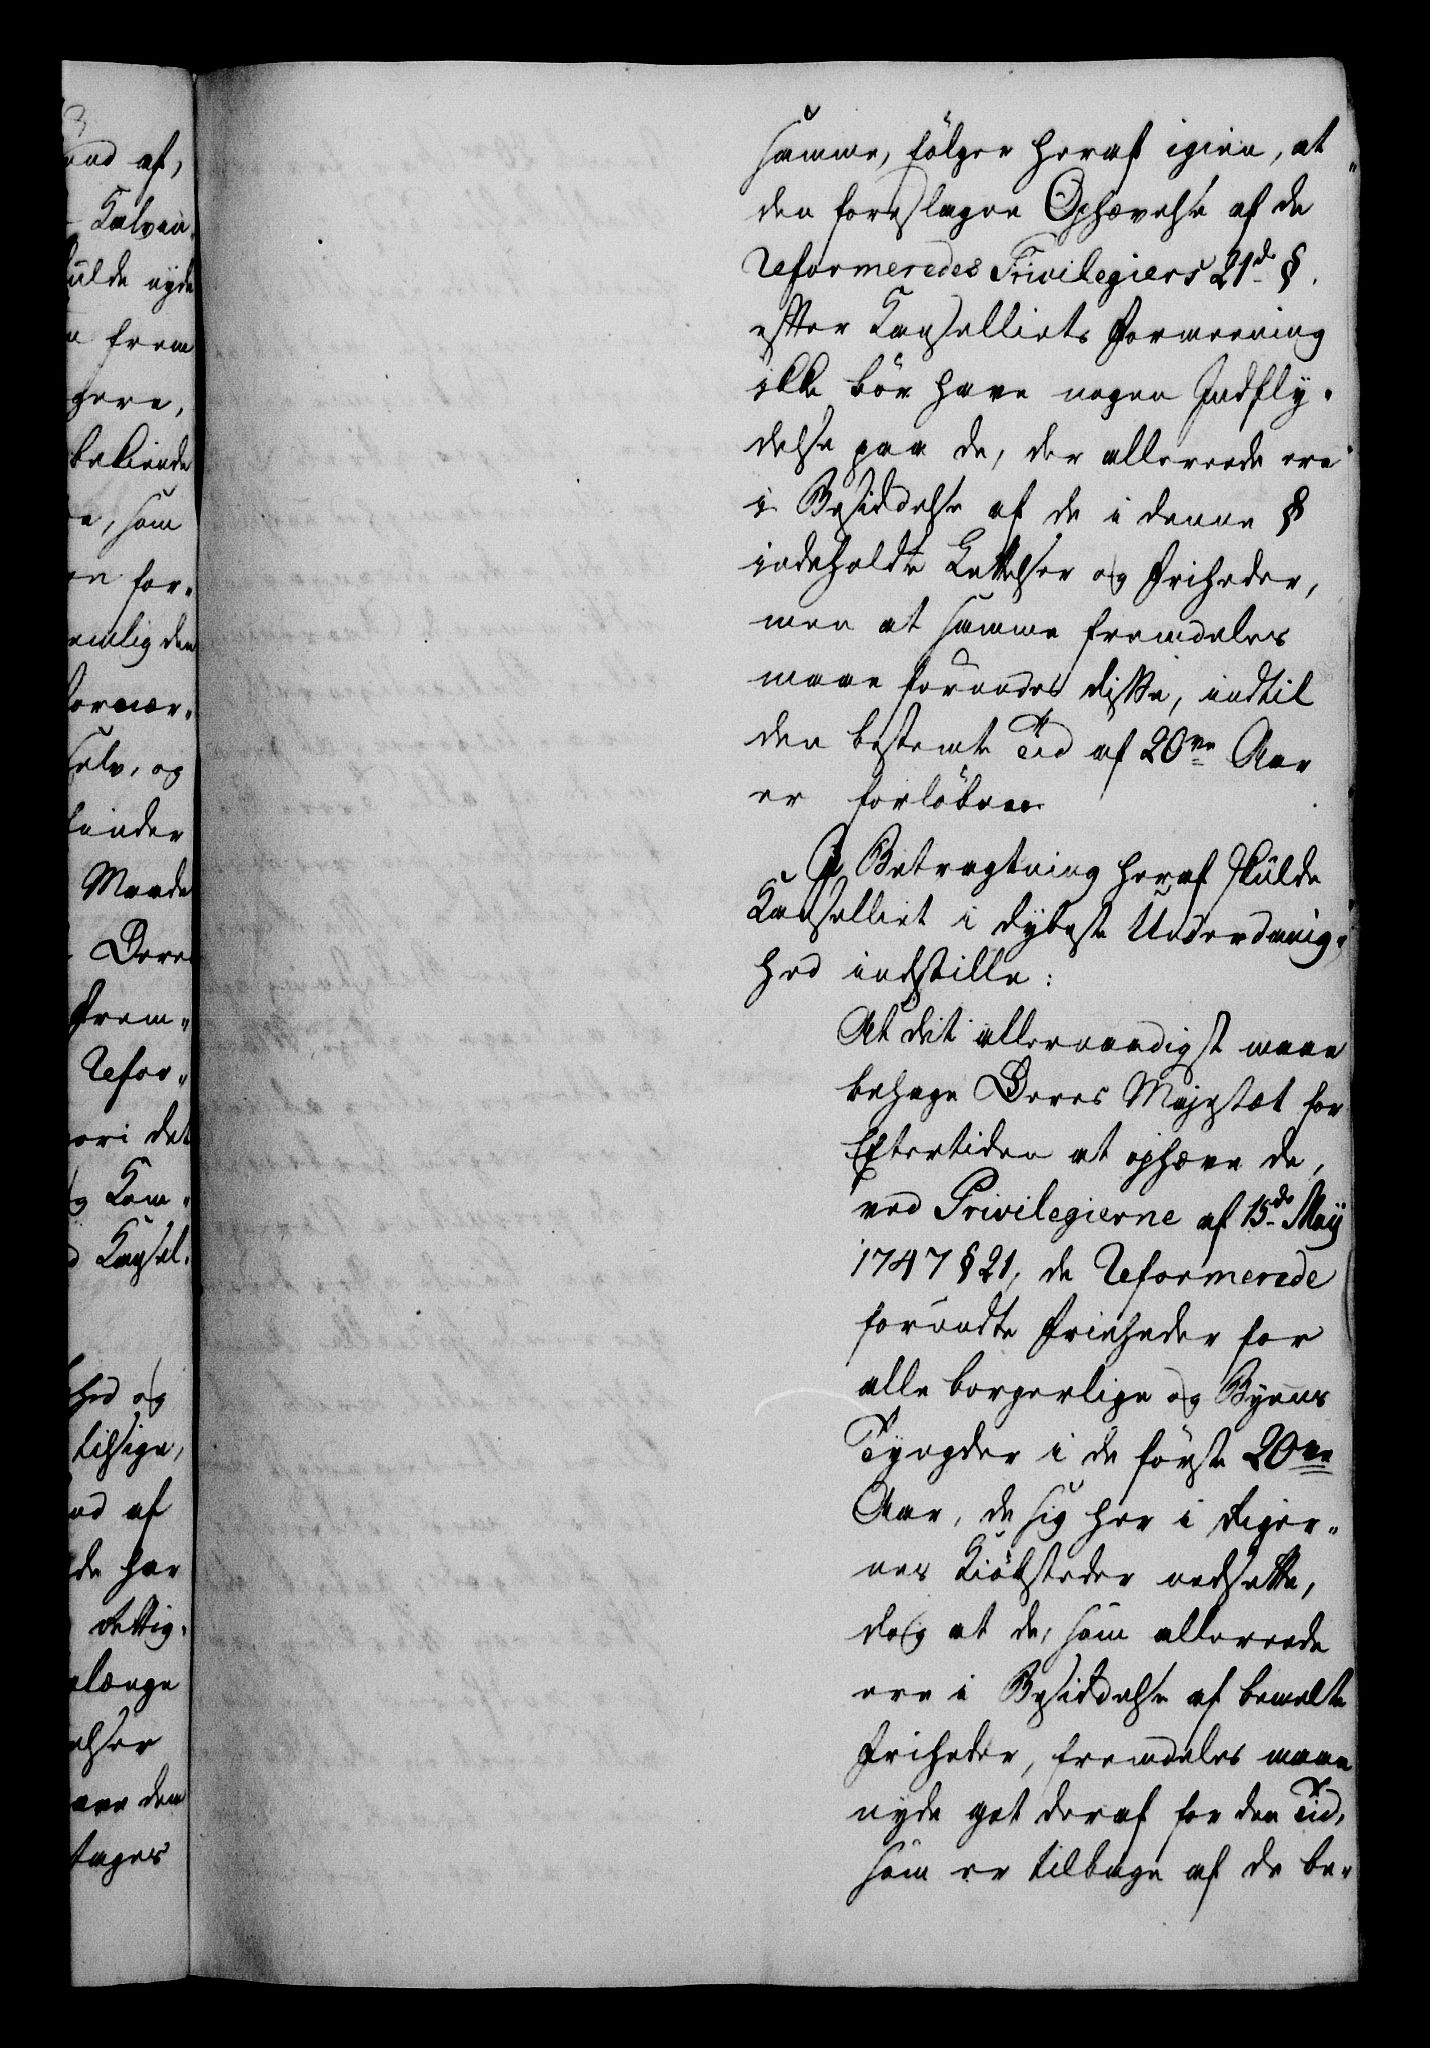 3
ond af,
Kalvin-
kulde nyde
n frem
gere,
bekiende
e, som
en for-
emlig den
formær-
selv, og
hinder
Maade
Deres
frem-
Refor-
ori det
og Kom-
d Kansel-
hed og
tilsige,
nd af
de har
Rettig-
elænge
elser
tages
samme, følger heraf igien, at
den foreslagne Ophævelse af de
Reformeredes Privilegiers 21de §.
efter Kanselliets Formeening
ikke bör have nogen Indfly-
delse paa de, der allereede ere
i Besiddelse af de i denne §
indeholdte Lettelser og Friheder,
men at samme fremdeles
maae forundes disse, indtil
den bestemte Tid af 20ve Aar
er forløben.
I Betragtning heraf skulde
Kanselliet i dybeste Underdanig-
hed indstille:
At det allernaadigst maae
behage Deres Majestæt for
Eftertiden at ophæve de,
ved Privilegierne af 15de Maij
1747 § 21, de Reformerede
forundte Friheder for
alle borgerlige og Byens
Tyngder i de første 20ve
Aar, de sig her i Riger-
nes Kiöbsteder nedsette,
dog at de, som allereede
ere i Besiddelse af bemelte
Friheder, fremdeles maae
nyde got deraf for den Tid,
som er tilbage af de be-